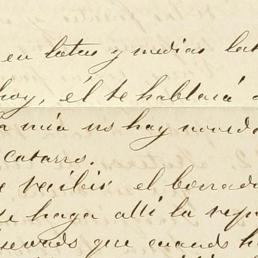 en latas y medias lat
hoy, él te hablará
a mia no hay noveda
catarro.
recibir el borrado
se haga allí la rep
que cuando h